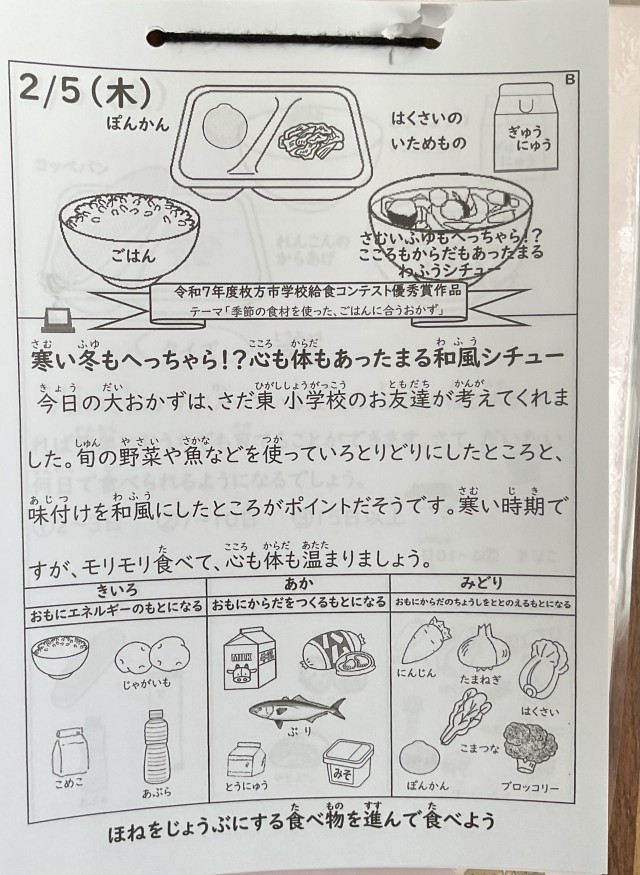 2/5(木)
B
ぽんかん
はくさいの
いためもの
ぎゅう
にゅう
ごはん
さむいふゆもへっちゃら!?
こころもからだもあったまる
わふうシチュー
令和7年度枚方市学校給食コンテスト優秀賞作品
テーマ「季節の食材を使った、ごはんに合うおかず」
寒い冬もへっちゃら!?心も体もあったまる和風シチュー
今日の大おかずは、さだ東小学校のお友達が考えてくれま
した。旬の野菜や魚などを使っていろとりどりにしたところと、
味付けを和風にしたところがポイントだそうです。寒い時期で
すが、モリモリ食べて、心も体も温まりましょう。
きいろ
おもにエネルギーのもとになる
じゃがいも
こめこ
あぶら
あか
おもにからだをつくるもとになる
MILK
ぶり
とうにゅう
みそ
みどり
おもにからだのちょうしをととのえるもとになる
にんじん
たまねぎ
はくさい
こまつな
ぽんかん
ブロッコリー
ほねをじょうぶにする食べ物を進んで食べよう